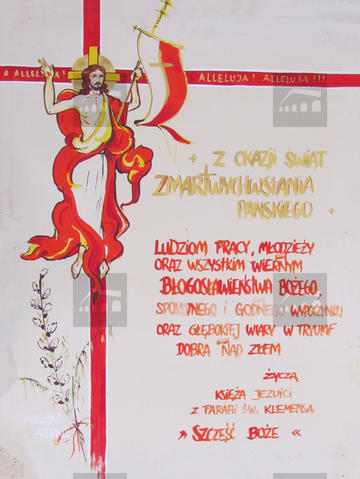 A ALLELUJA!
ALLELUJA! ALLELUJA!!!
Z OKAZJI ŚWIĄT
ZMARTWYCHWSTANIA
PAŃSKIEGO
LUDZIOM PRACY, MŁODZIEŻY
ORAZ WSZYSTKIM WIERNYM
BŁOGOSŁAWIEŃSTWA BOŻEGO,
SPOKOJNEGO i GODNEGO WYPOCZYNKU
ORAZ GŁĘBOKIEJ WIARY W TRYUMF
DOBRA NAD ZŁEM
ŻYCZĄ
KSIĘŻA JEZUICI
Z PARAFII ŚW. KLEMENSA
» SZCZĘŚĆ BOŻE «